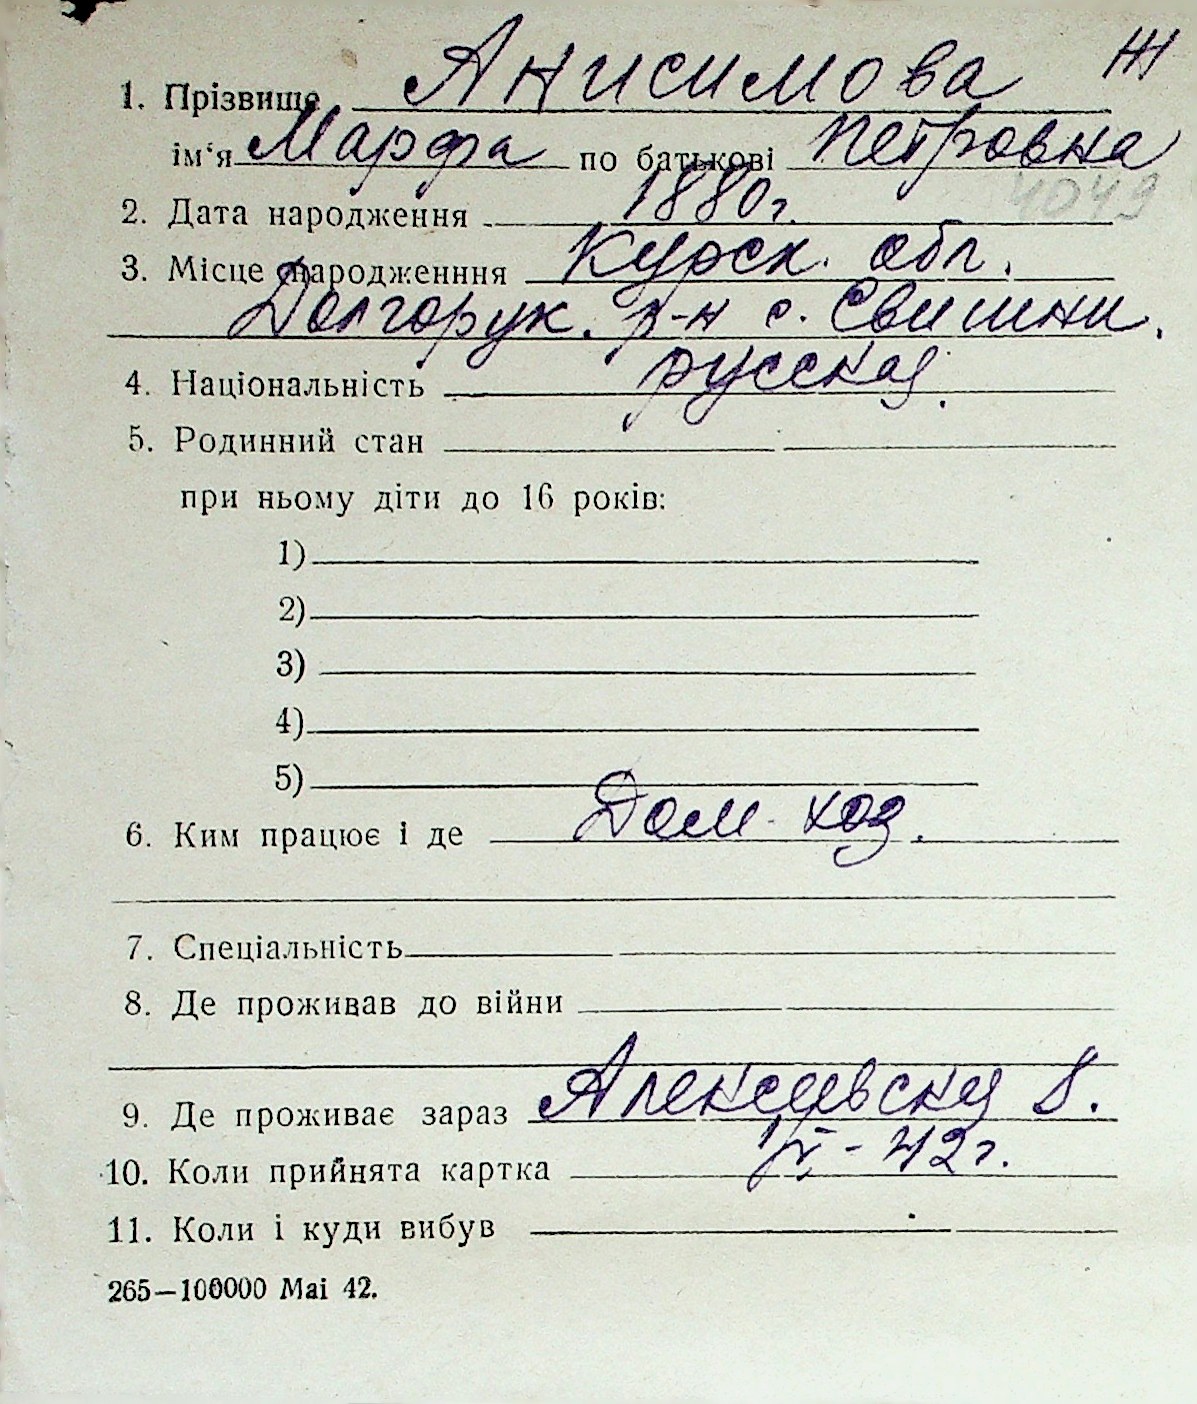 Ж
1. Прізвище Анисимова
ім'я Марфа по батькові Петровна
4049
2. Дата народження 1880г.
3. Місце народженння Курск. обл.
Долгорук. р-н с. Свишни.
4. Національність русская.
5. Родинний стан
при ньому діти до 16 років:
1)
2)
3)
4)
5)
6. Ким працює і де Дом. хоз.
7. Спеціальність
8. Де проживав до війни
9. Де проживає зараз 8.
10. Коли прийнята картка - 42г.
11. Коли і куди вибув
265—100000 Mai 42.